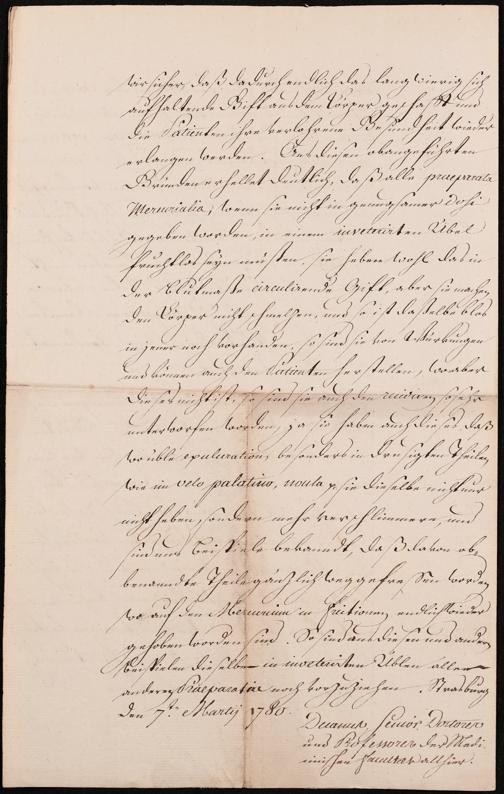 versichern, daß dadurch endlich das langwierig sich
aufhaltende Gift aus dem Körper geschafft und
die Patienten ihre verlohrene Gesundheit wieder
erlangen werden. Aus diesen obangeführten
Gründen erhellet deutlich, daß alle praeparata
Mercurialia, wenn sie nicht in genugsamer dosi
gegeben worden, in einem inveterirten Übel
fruchtlos seyn müßten, sie heben wohl das in
der Blutmaße circulirende Gift, aber sie machen
den Körper nicht schmelzen, und so ist daßelbe blos
in jener noch vorhanden, so sind sie von Würkungen
und können auch den Patienten herstellen, wo aber
dieses nicht ist, so sind sie auch den so sehr
unterworfen worden, ja sie haben auch dieses daß
wo üble besonders in drusigten Theilen
wie im velo palatino, sie dieselbe nicht nur
nicht heben, sondern mehr verschlimmern, und
sind uns Beispiele bekandt, daß davon ob-
benandte Theile gänzlich weggefreßen worden
wo auf den Mercurium in frictionen endlich wieder
gehoben worden sind. So sind aus diesen und andern
Beispielen dieselbe in inveterirten Üblen allen
anderen Praeparatis noch vorzuziehen. Strasburg
den 7.ten Martij 1780.
Decanus, Senior, Doctores
und Professores der Medi-
cinischen Facultaet allhier.